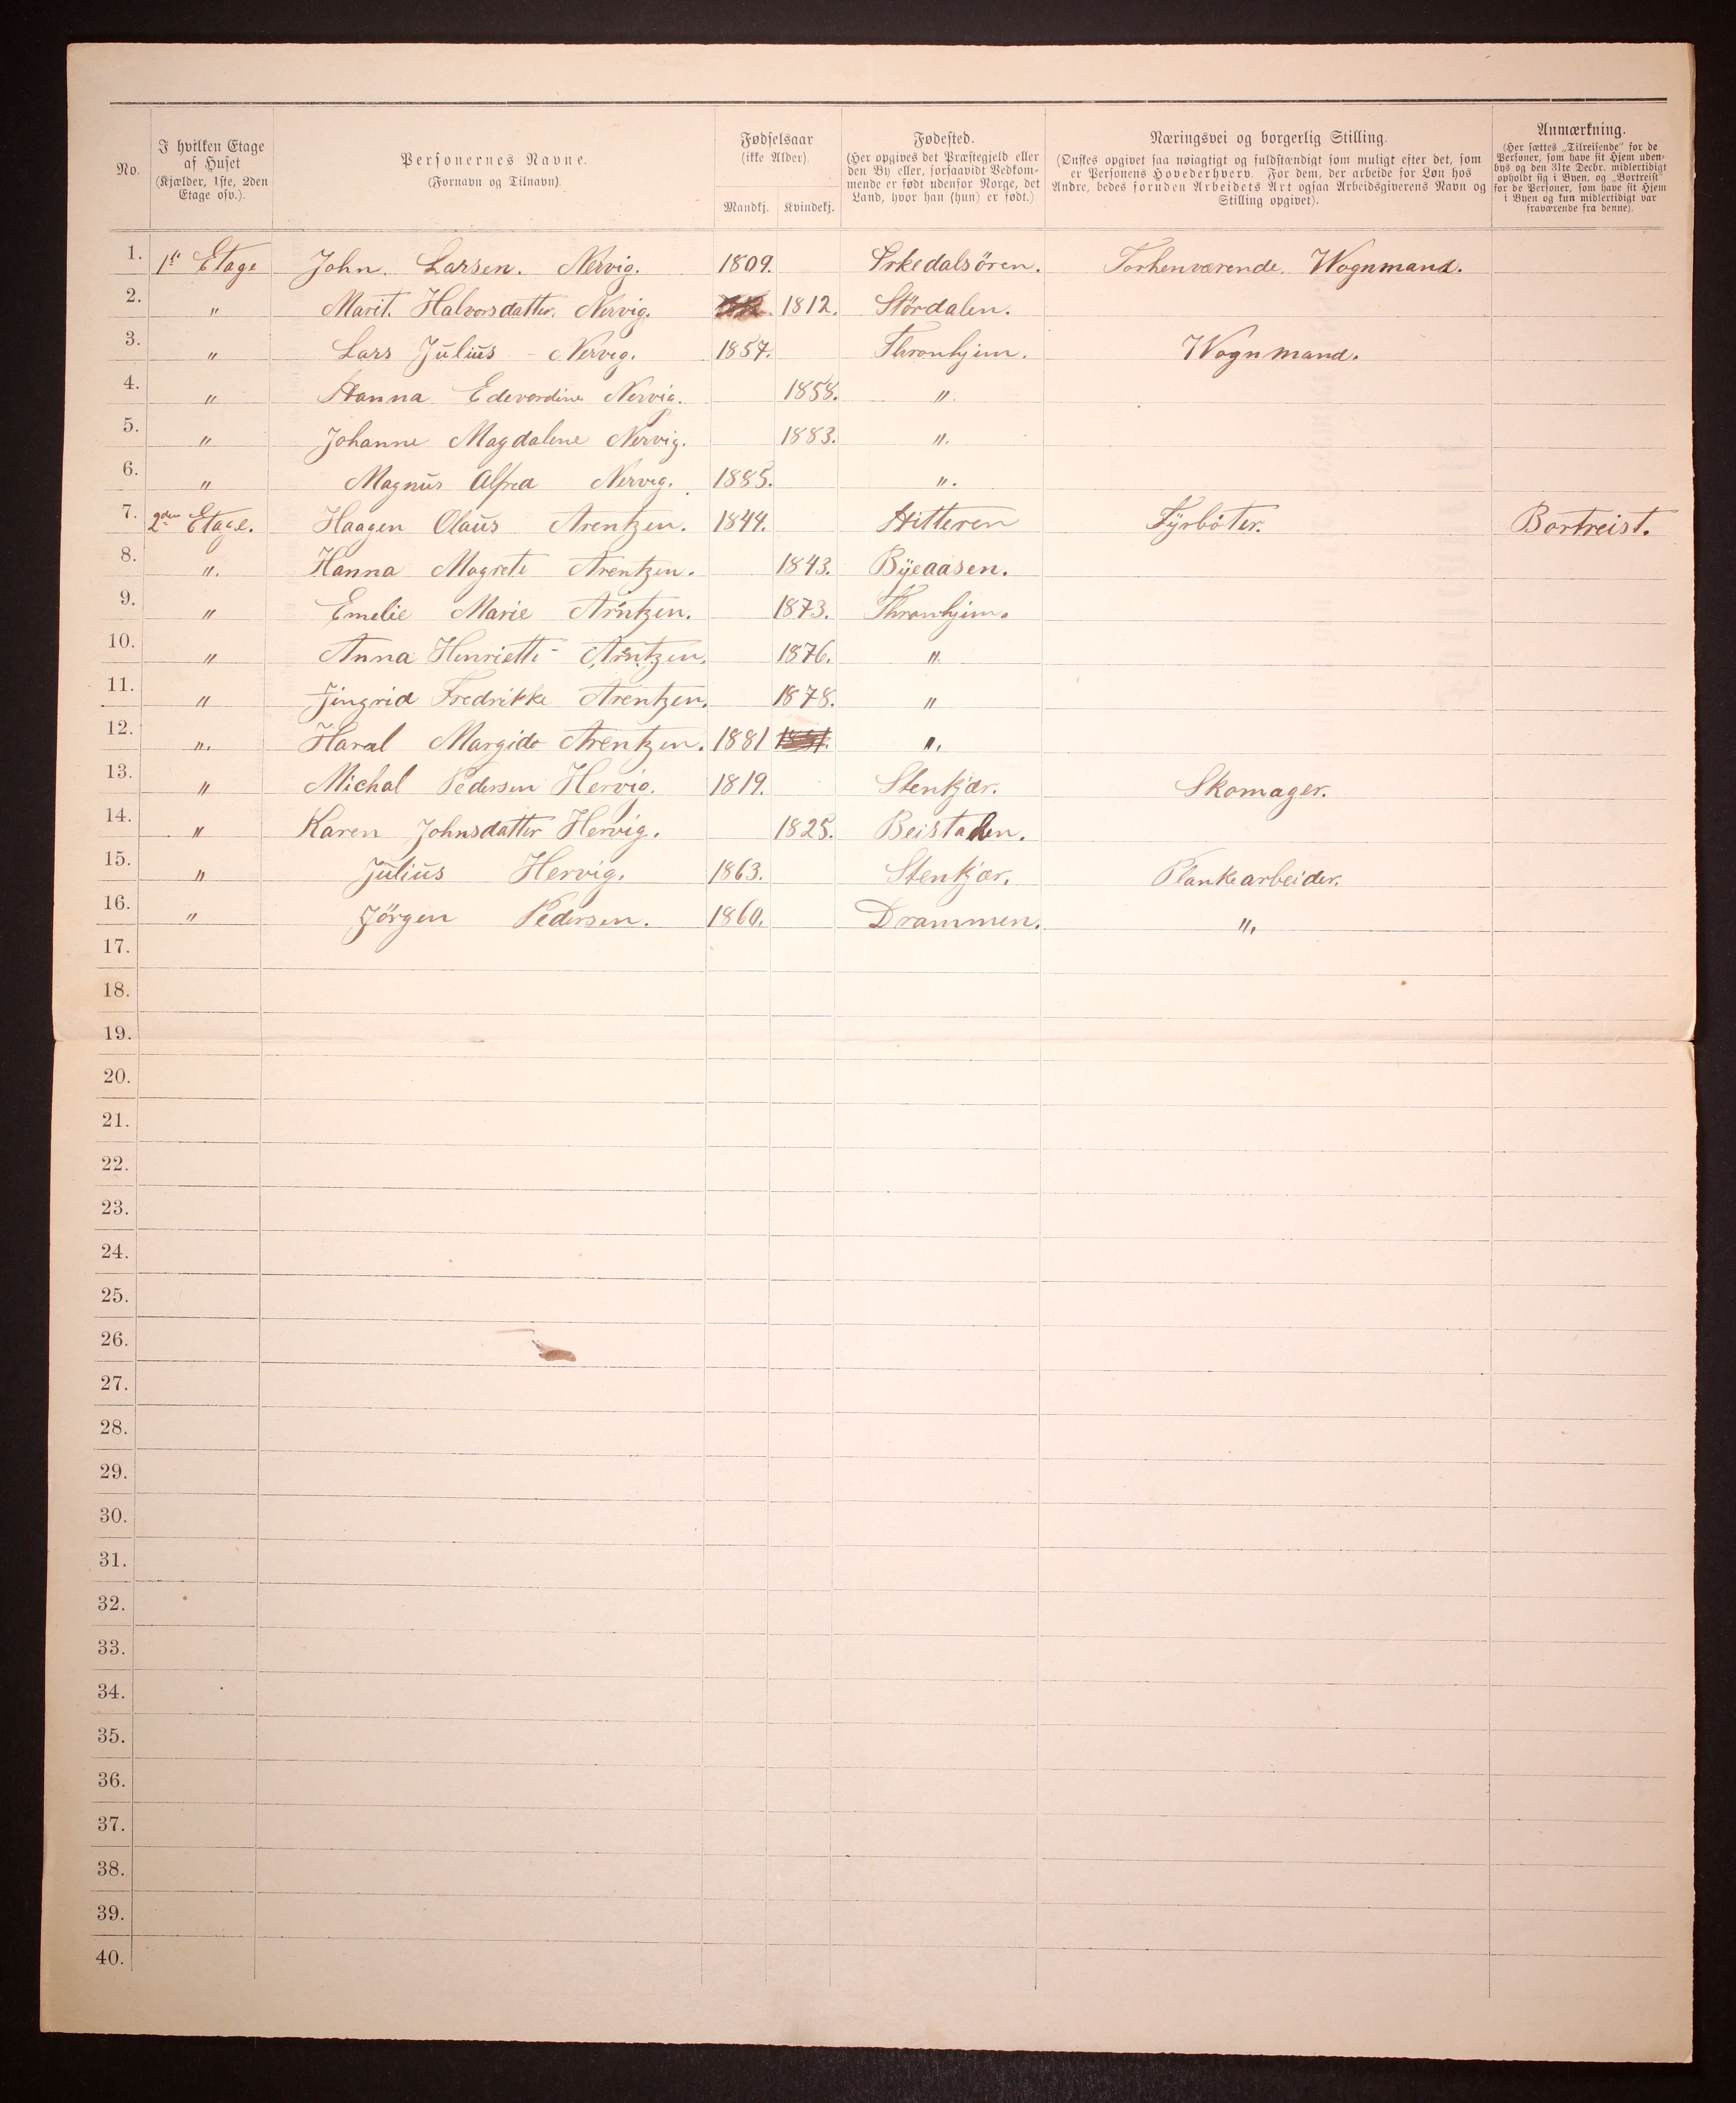 No. I hvilken Etage af Huset (Kjælder, 1ste, 2den Etage osv.). Personernes Navne. (Fornavn og Tilnavn) Fødselsaar (ikke Alder) Mandkj. Kvindekj. Fødested. (Her opgives det Præstegjeld eller den By eller, forsaavidt Vedkommende er født udenfor Norge, det Land, hvor han (hun) er født.) Næringsvei og borgerlig Stilling. (Ønskes opgivet saa nøiagtigt og fuldstændigt som muligt efter det, som er Personens Hovederhverv. For dem, der arbeide for Løn hos Andre, bedes foruden Arbeidets Art ogsaa Arbeidsgiverens Navn og Stilling opgivet). Anmærkning. (Her sættes „Tilreisende" for de Personer, som have sit Hjem udenbys og den 31te Decbr. midlertidigt opholdt sig i Byen, og „Bortreist" for de Personer, som have sit Hjem i Byen og kun midlertidigt var fraværende fra denne).
1. 1ste Etage John. Larsen. Nervig. 1809. Orkedalsören. Forhenværende. Wognmand.
2. " Marit. Halvorsdatter. Nervig. 1812. Stördalen.
3. " Lars Julius - Nervig. 1857. Thronhjem. Wognmand.
4. " Hanna Edevardine Nervig. 1858. ".
5. " Johanne Magdalene Nervig. 1883. ".
6. " Magnus Alfred Nervig. 1885. ".
7. 2den Etage. Haagen Olaus Arentzen. 1844. Hitteren Fyrböter. Bortreist.
8. ". Hanna Magrete Arentzen. 1843. Byeaasen.
9. " Emelie Marie Arntzen. 1873. Thronhjem.
10. " Anna Henriette - Arntzen. 1876. ".
11. " Jingrid Fredrikke Arentzen. 1878. "
12. ". Haral Margido Arentzen. 1881 ".
13. " Michal Pedersen Hervig. 1819. Stenkjær. Skomager.
14. " Karen Johnsdatter Hervig. 1825. Beistaden.
15. " Julius Hervig. 1863. Stenkjær. Plankearbeider.
16. " Jörgen Pedersen. 1860. Drammen. ".
17.
18.
19.
20.
21.
22.
23.
24.
25.
26.
27.
28.
29.
30.
31.
32.
33.
34.
35.
36.
37.
38.
39.
40.